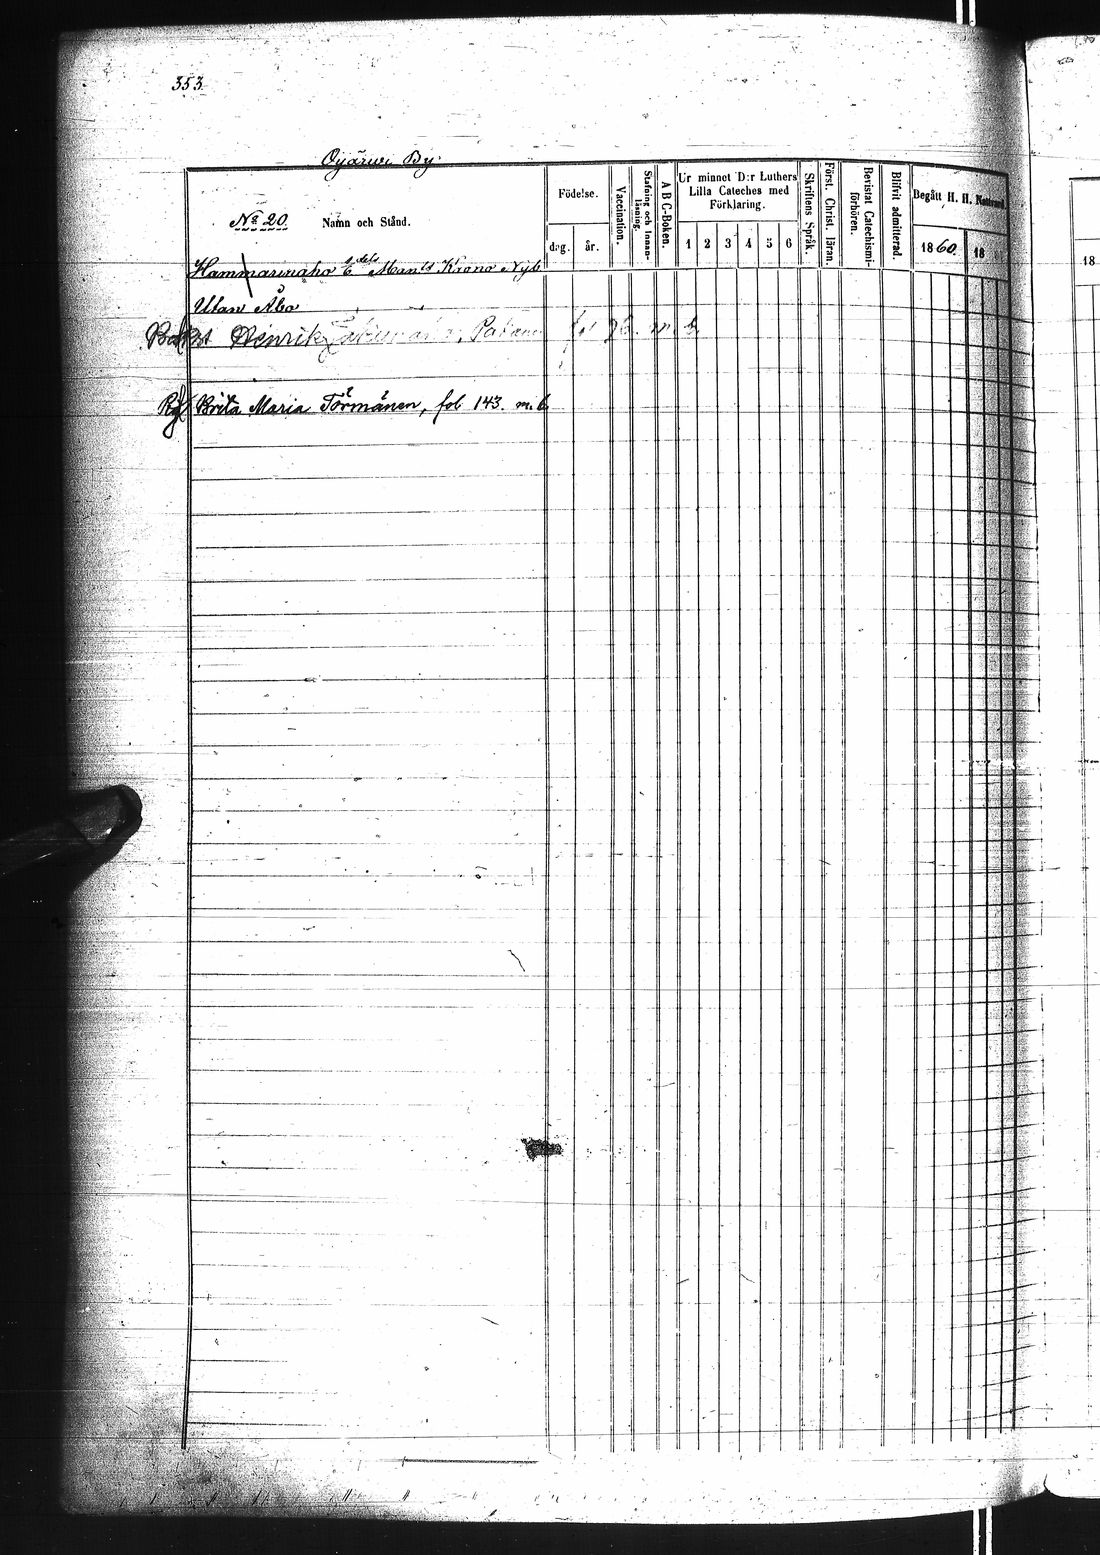 353.
Oijärwi By.
No 20. Namn och Stånd.
Födelse.
dag. år.
Vaccination.
Stafning och Innanläsning.
A B C-Boken.
Ur minnet D:r Luthers Lilla Cateches med Förklaring.
1 2 3 4 5 6
Skriftens Språk.
Först. Christ. läran.
Bevistat Catechismiförhören.
Blifvit admitterad.
Begått H. H. Nattvard.
1860. 18
Mants Krono Nyb
Utan Åbo
Henrik fol m. b.
Brita Maria Törmänen, fol 143. m. b
18